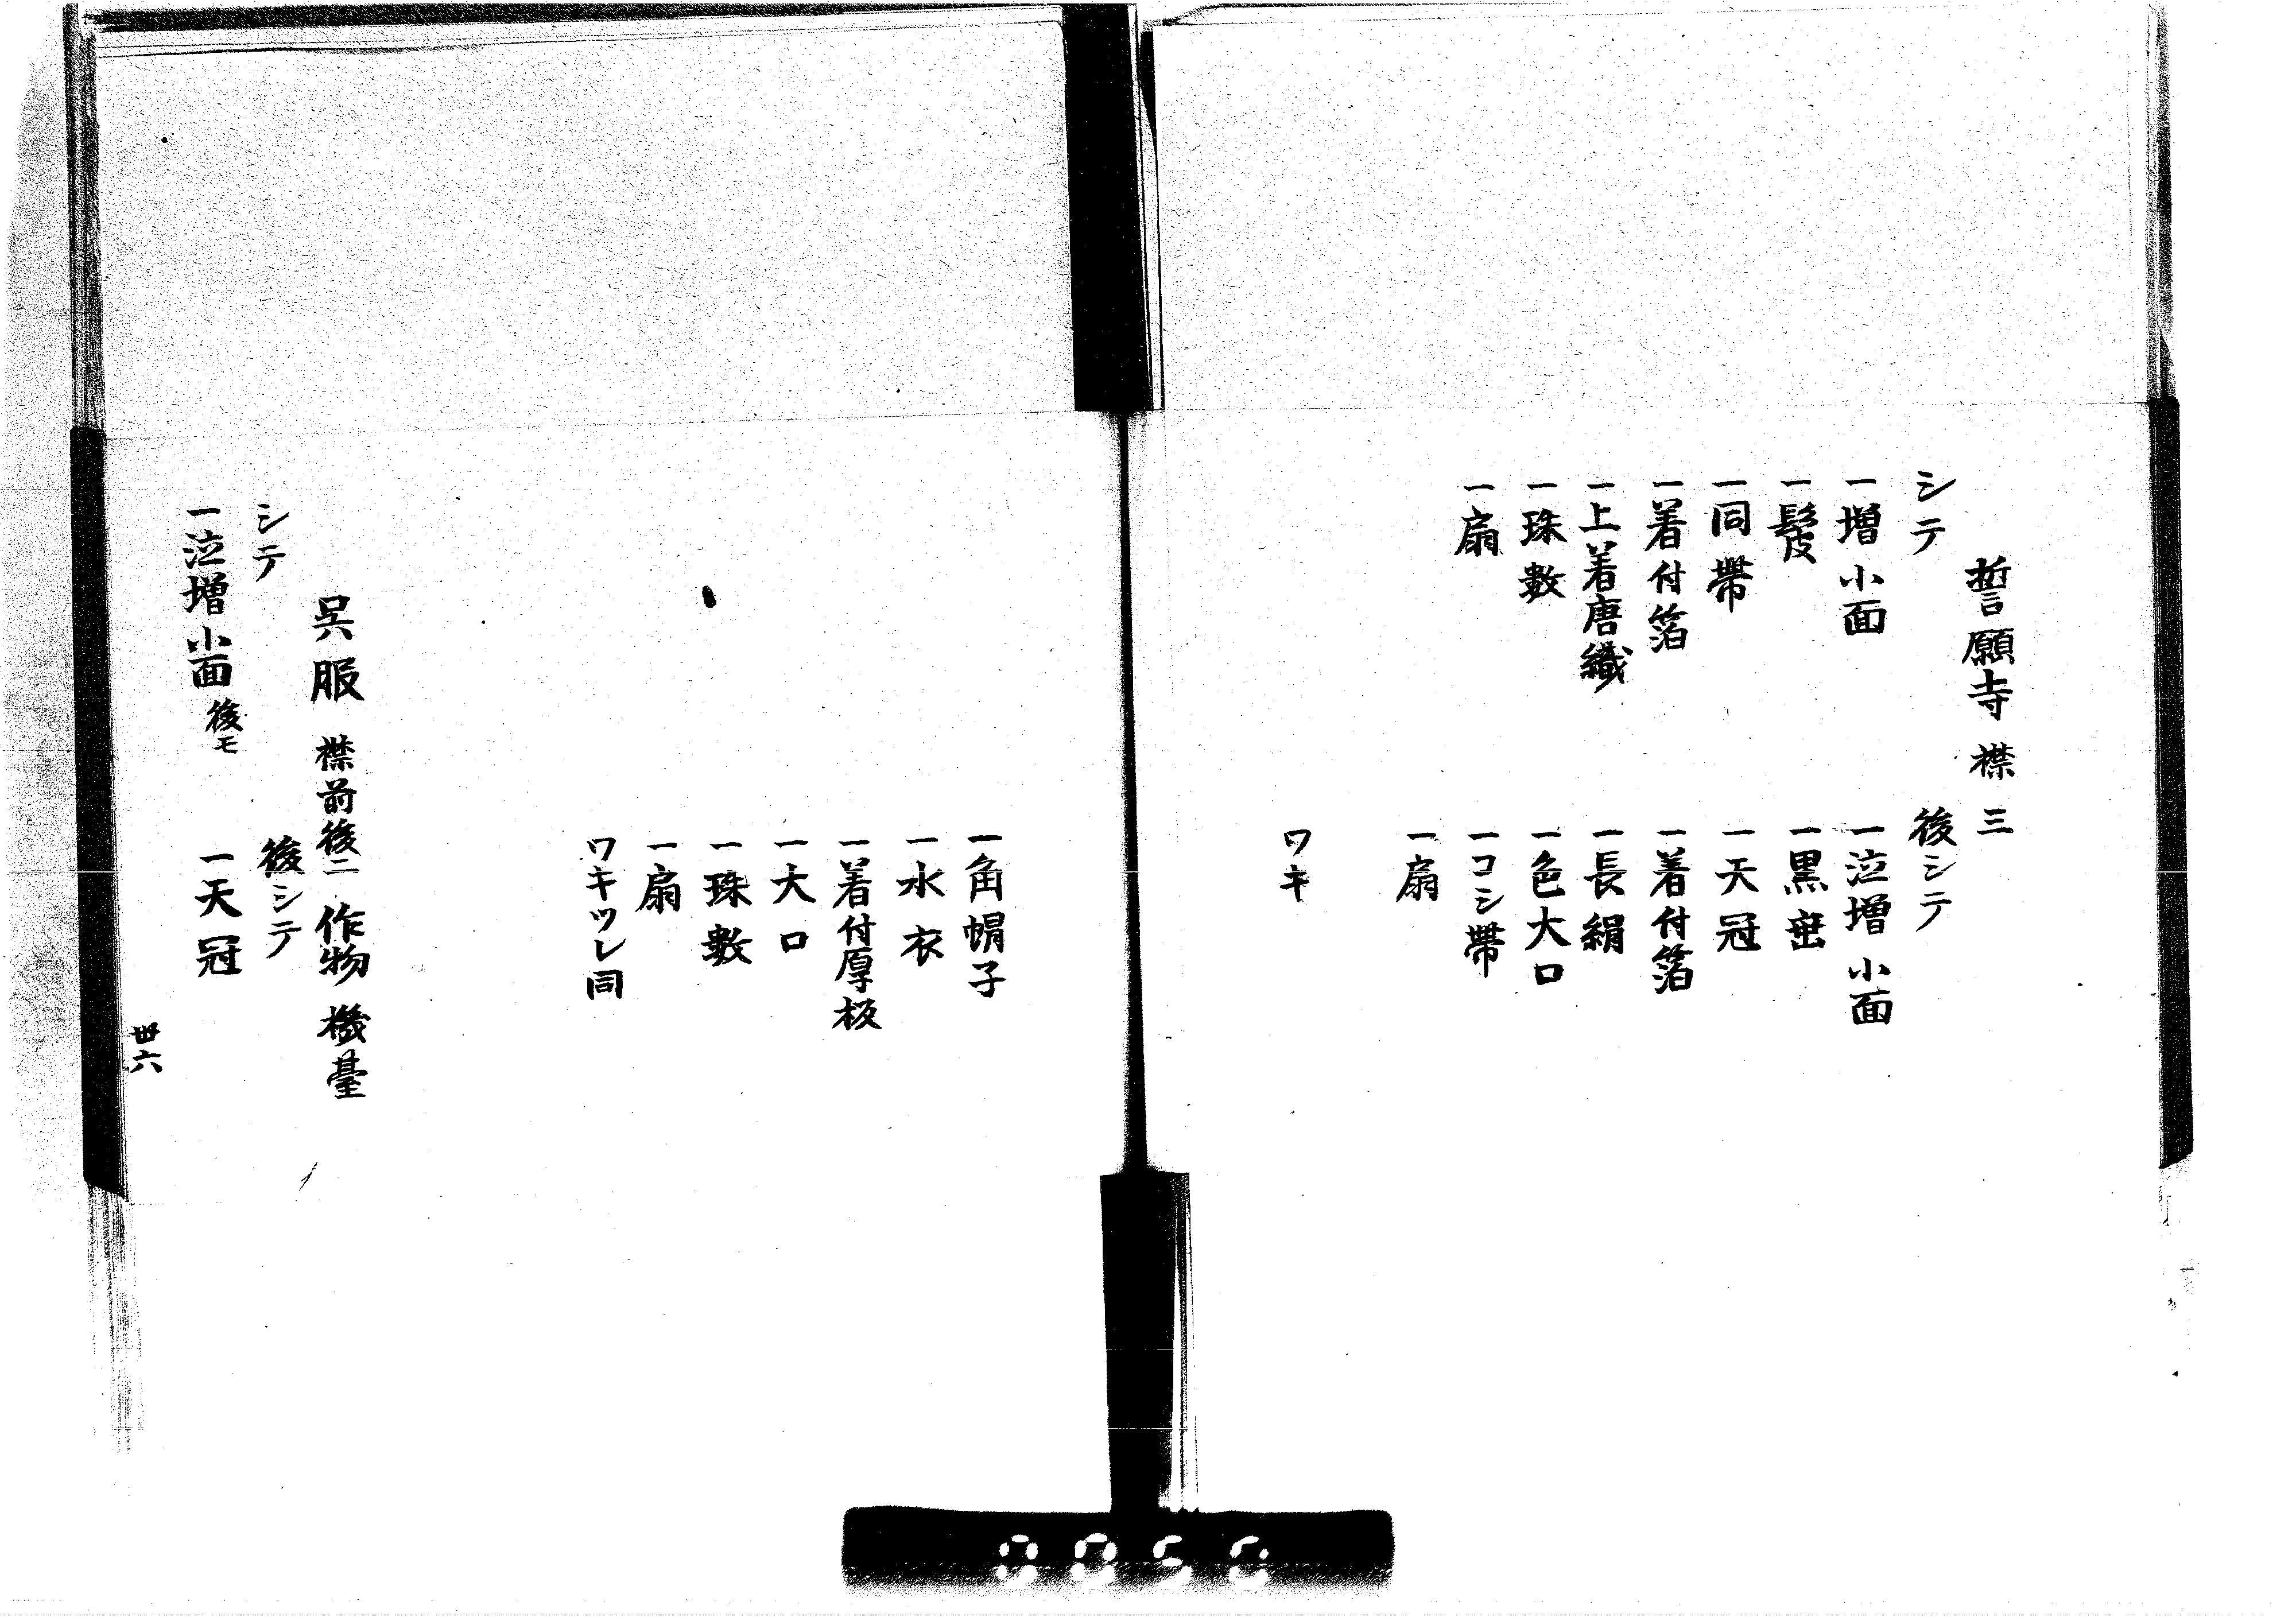 誓願寺 襟三
シテ
一増小面
一鬘
一同帶
一着付箔
一上着唐織
一珠數
一扇
後シテ
一泣増小面
一黒垂
一天冠
一着付箔
一長絹
一色大口
一コシ帶
一扇
ワキ
一角帽子
一水衣
一着付厚板
一大口
一珠數
一扇
ワキツレ同
呉服 襟前後二 作物 機臺
シテ
一泣増小面 後モ
後シテ
一天冠
丗六